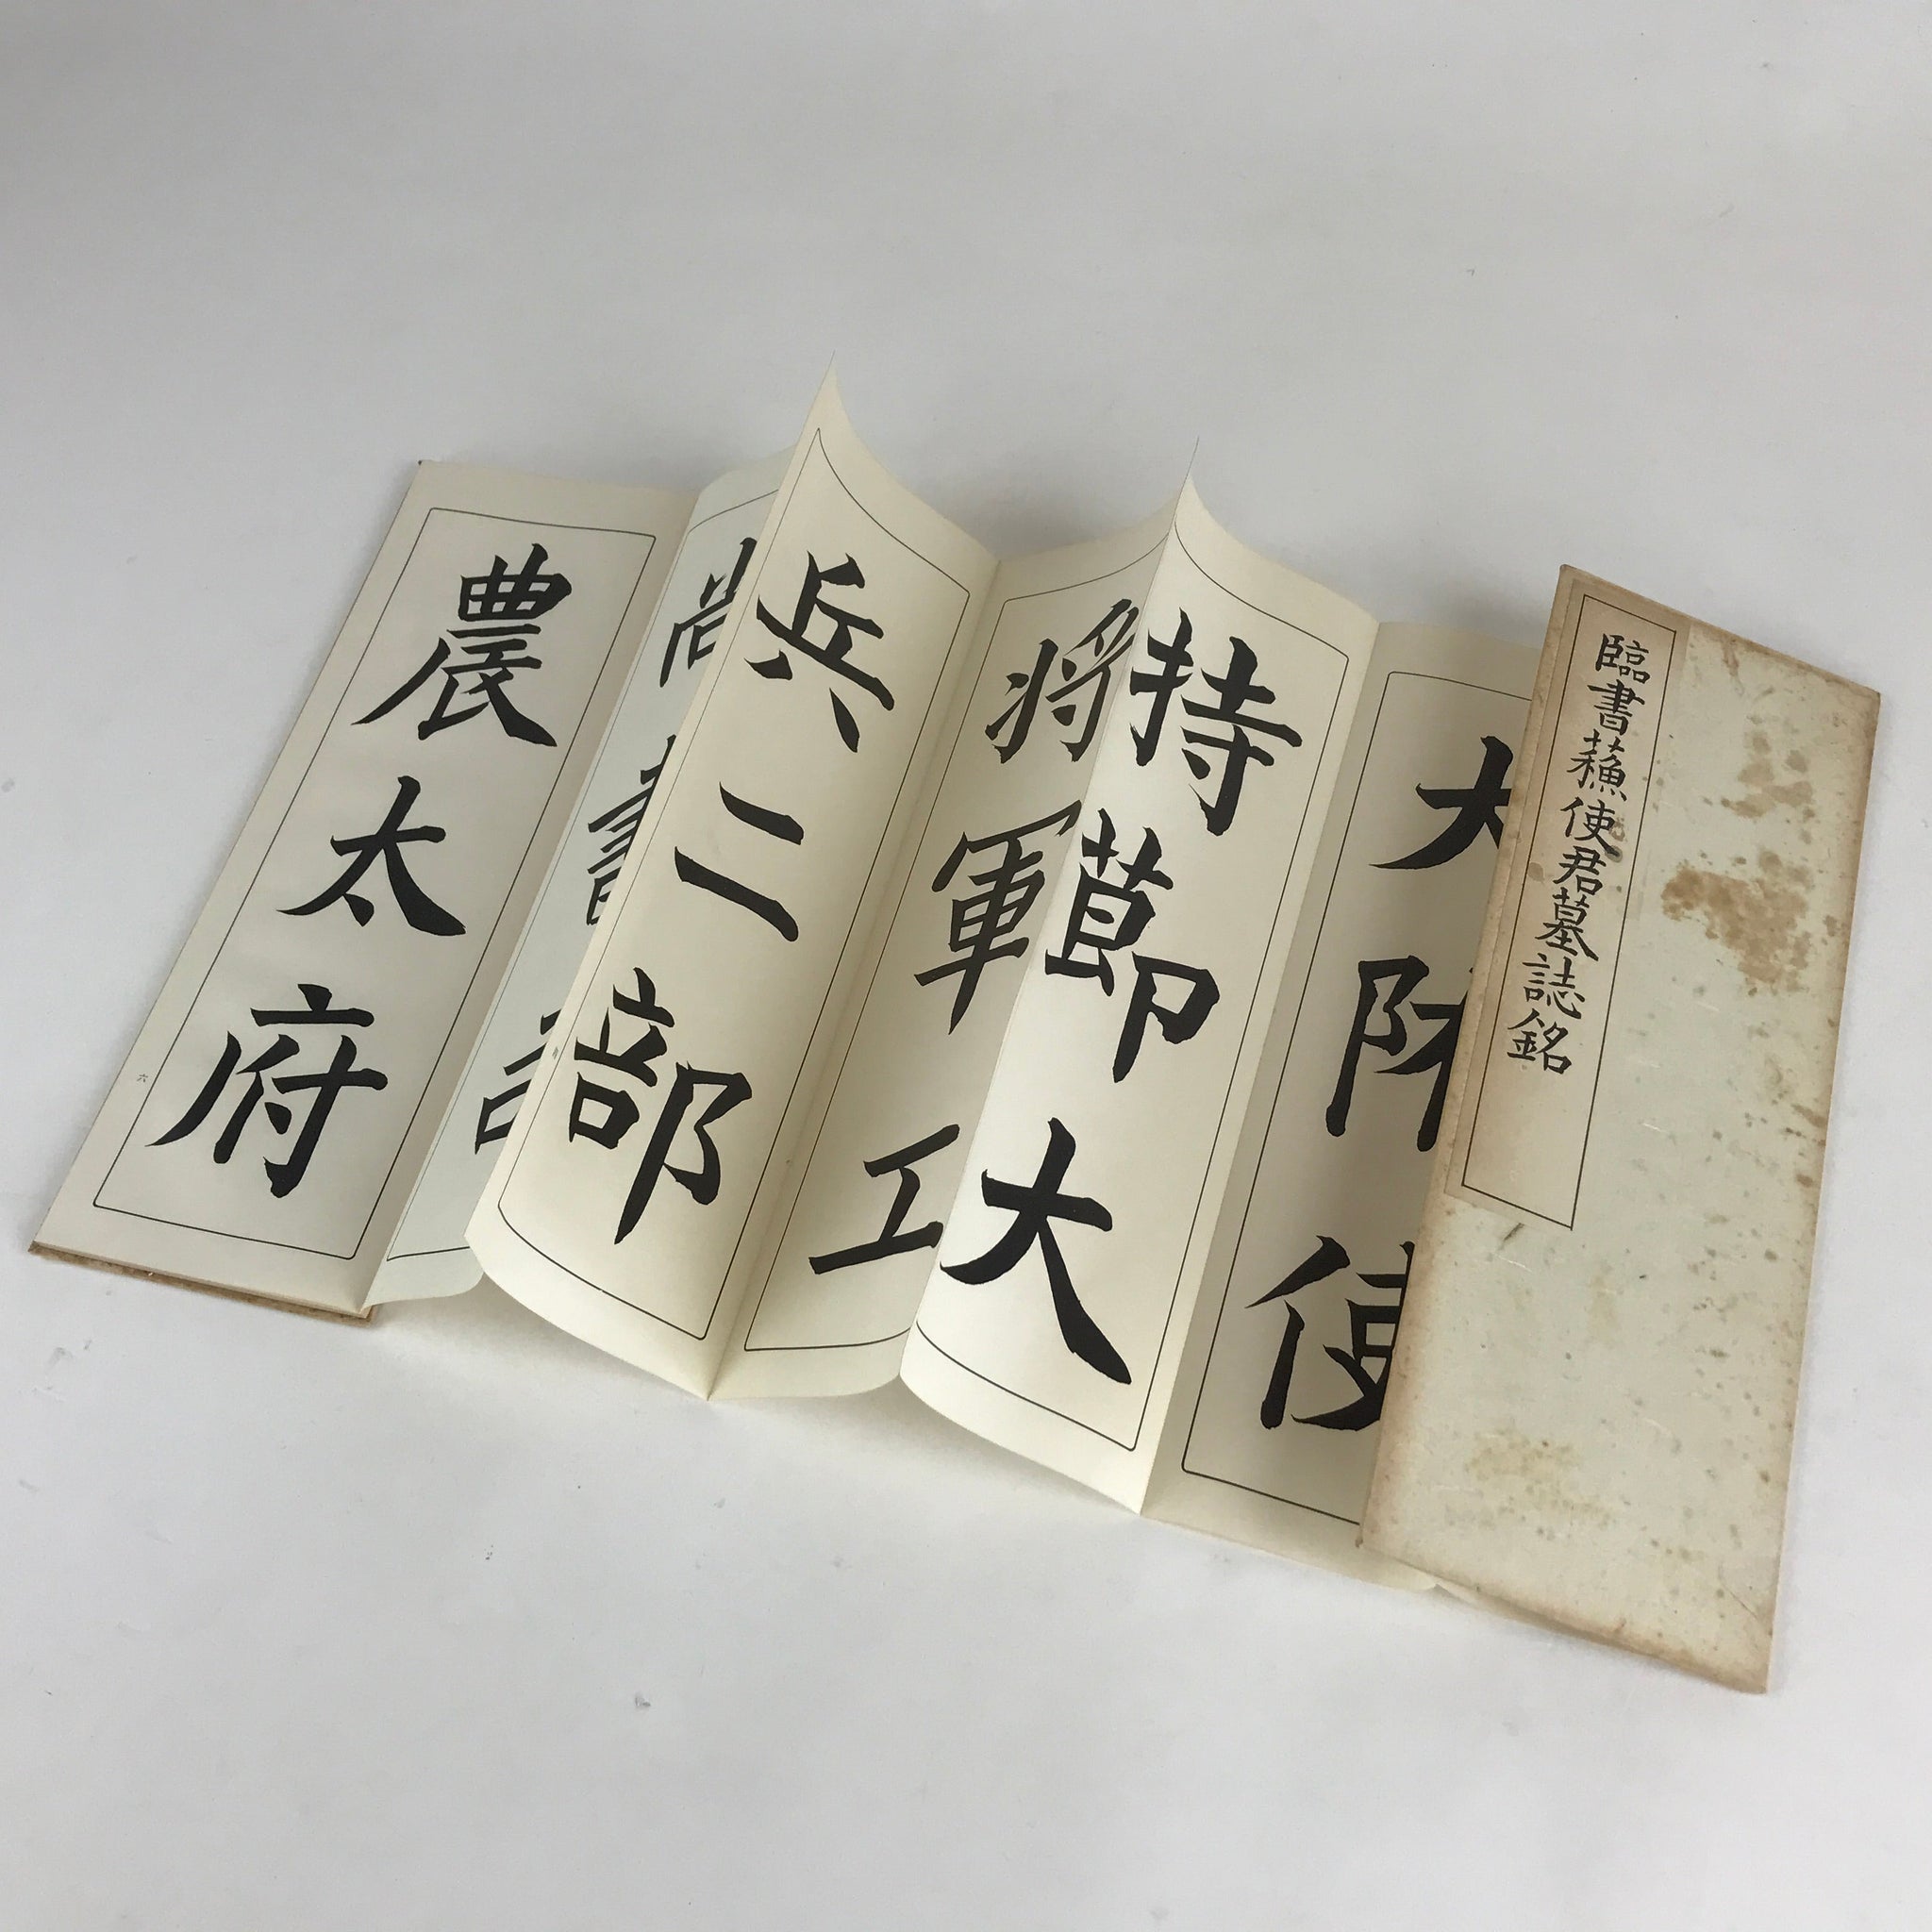 臨書蘓使君墓誌銘
大隋使
持莭大
将軍工
兵二部
尚書司
農太府
六